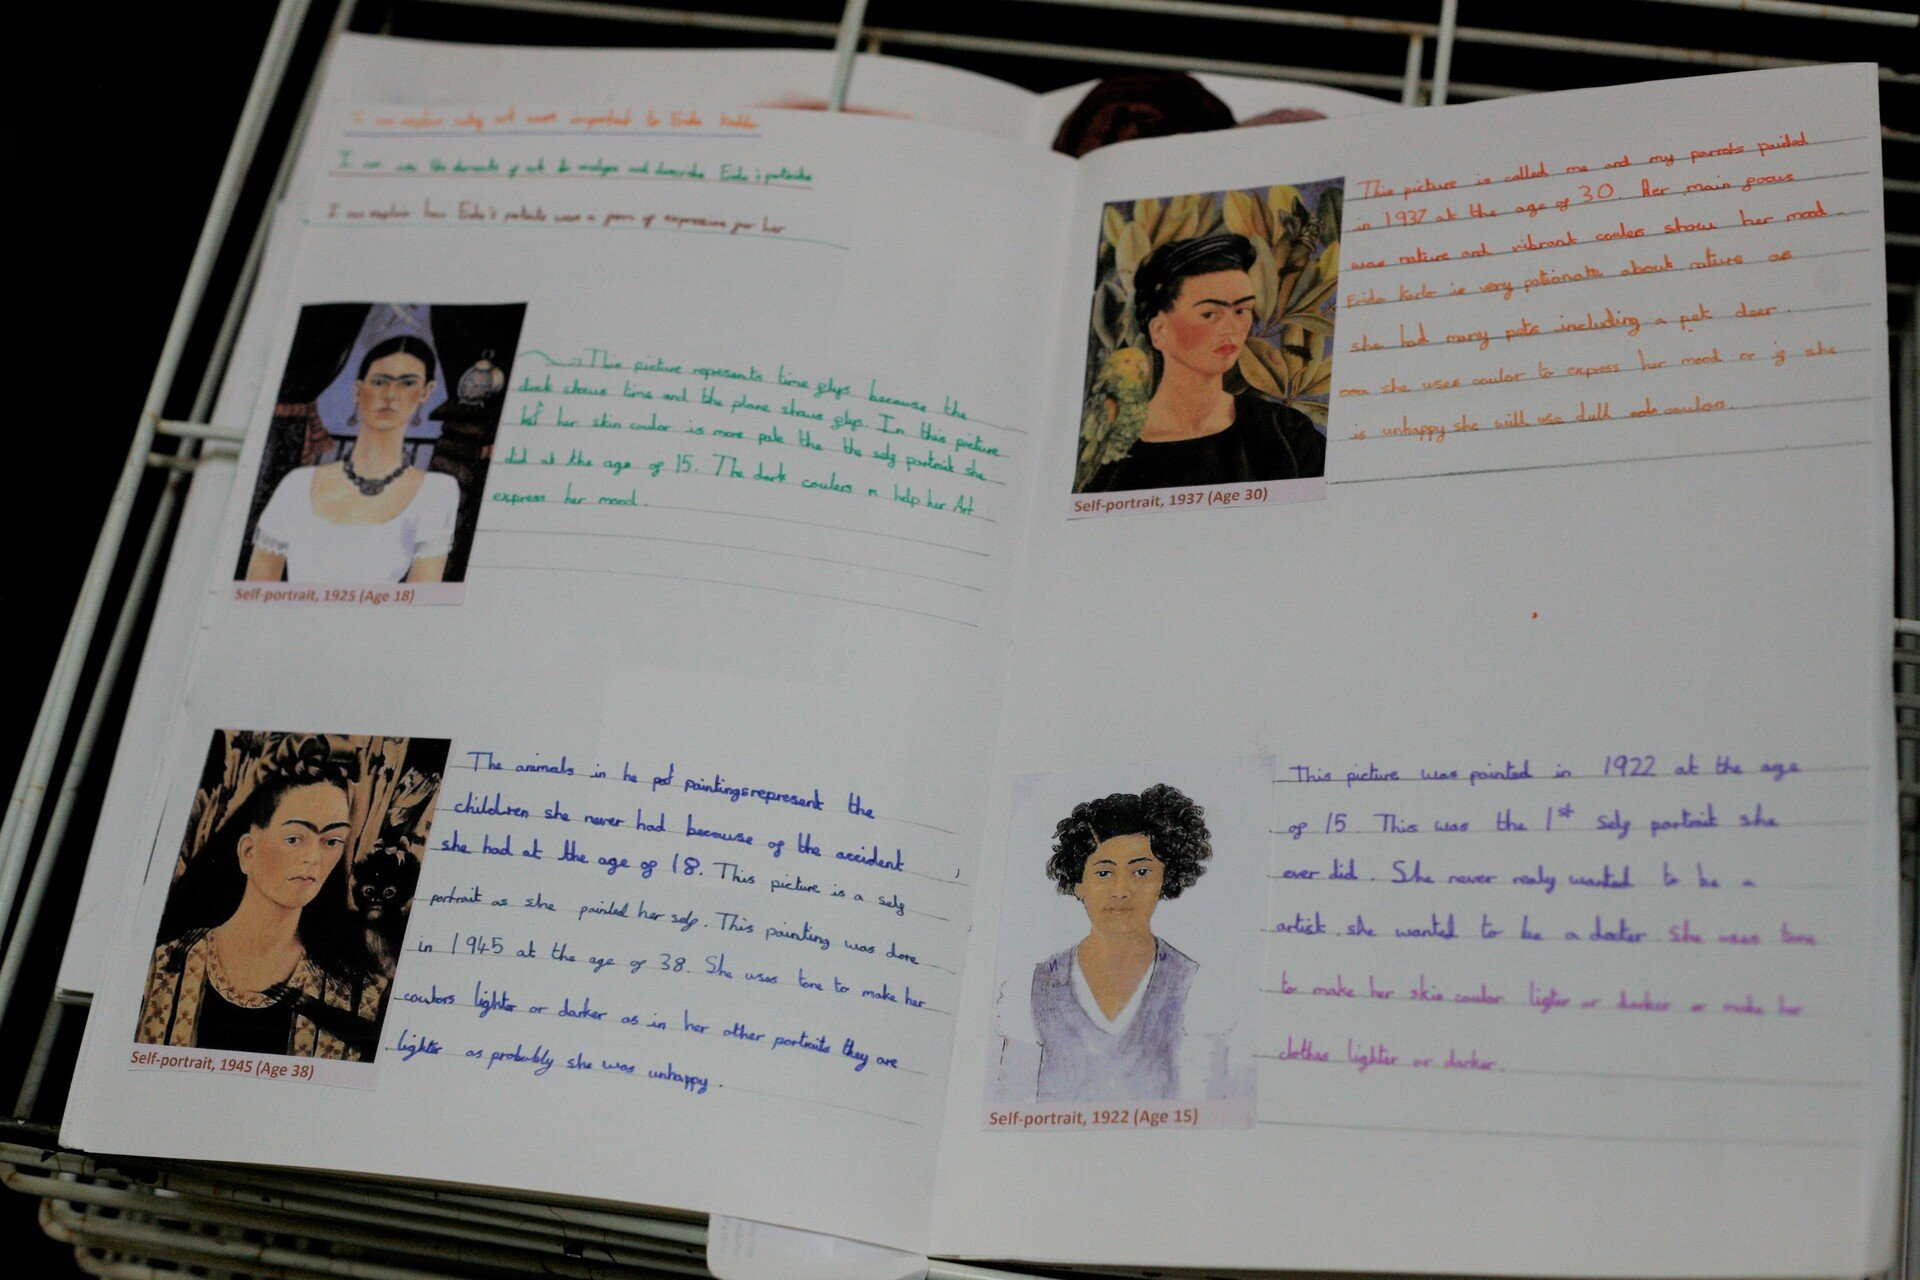 I can explain why art was important to Frida Kahlo
I can use the elements of art to analyse and describe Frida's portraits
I can explain how Frida's portraits were a form of expression for her
This picture represents time flys because the
clock shows time and the plane shows flys. In this picture
her skin coulor is more pale the the self portrait she
did at the age of 15. The dark coulers help her Art
express her mood.
Self-portrait, 1925 (Age 18)
The animals in he paintings represent the
children she never had because of the accident
she had at the age of 18. This picture is a self
portrait as she painted her self. This painting was done
in 1945 at the age of 38. She uses tone to make her
coulors lighter or darker as in her other portraits they are
lighter as probably she was unhappy.
Self-portrait, 1945 (Age 38)
This picture is called me and my parrots painted
in 1937 at the age of 30. Her main focus
was nature and vibrant coulers show her mood.
Frida Karlo is very pationate about nature as
she had many pets including a pet deer.
she uses coulor to express her mood or if she
is unhappy she will use dull coulors.
Self-portrait, 1937 (Age 30)
This picture was painted in 1922 at the age
of 15. This was the 1st self portrait she
ever did. She never realy wanted to be a
artist she wanted to be a docter. She uses tone
to make her skin coulor ligter or darker or make her
clothes lighter or darker.
Self-portrait, 1922 (Age 15)